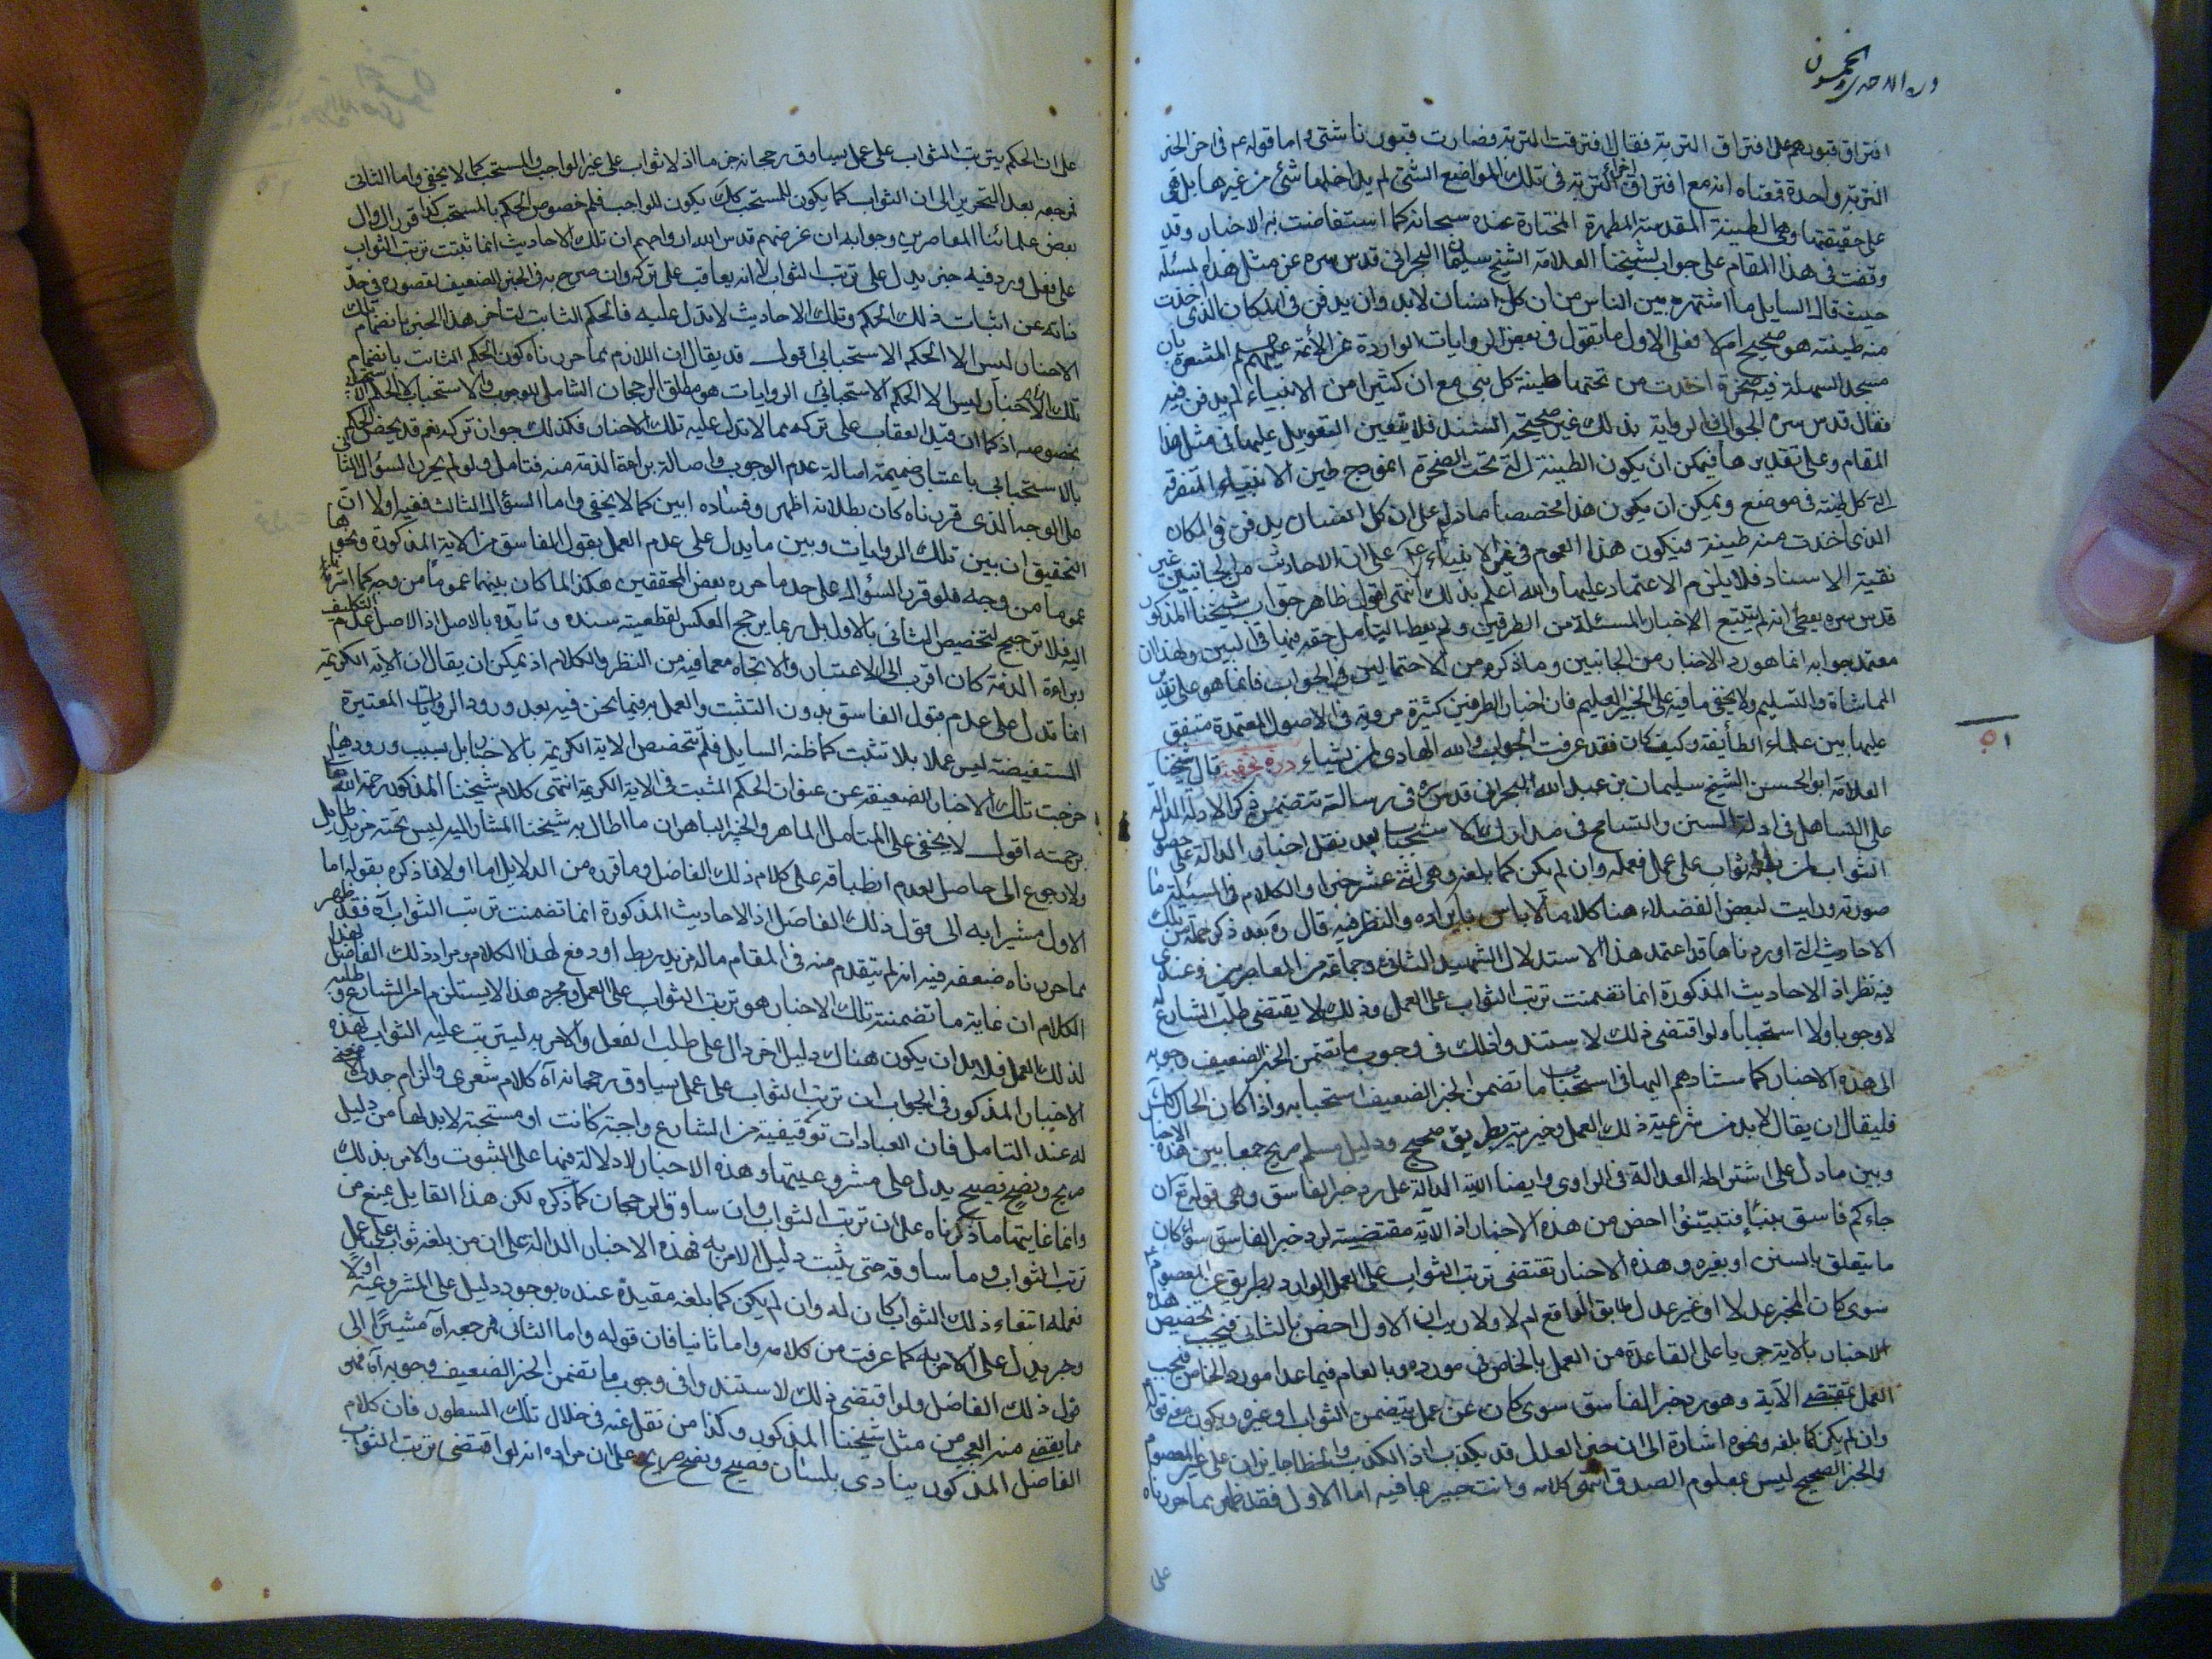 افتراق قبورهم على افتراق التربة فقال لافترقت التربة فصارت قبورنا شتى واما قوله عم في اخر الخبر
التربة واحدة فمعناه انه مع افتراق اجزاء التربة في تلك المواضع الشتى لم يداخلها شئ من غيرها بل هي
على حقيقتها وهي الطينة المقدسة المطهرة المختارة عنده سبحانه كما استفاضت به الاخبار وقد
وقفت في هذا المقام على جواب لشيخنا العلامة الشيخ سليمان البحراني قدس سره عن مثل هذه المسئلة
حيث قال السايل ما اشتهر بين الناس من ان كل انسان لابد وان يدفن في المكان الذي اخذت
منه طينته هو صحيح ام لا فعلى الاول ما تقول في بعض الروايات الواردة عن الأئمة عليهم السلم المشعرة بان
مسجد السهلة فيه صخرة اخذت من تحتها طينة كل نبي مع ان كثيرا من الانبياء لم يدفن فيه
فقال قدس سره الجواب الرواية بذلك غير صحيحة السند فلا يتعين التعويل عليها في مثل هذا
المقام وعلى تقديرها فيمكن ان يكون الطينة التي تحت الصخرة انموذج طين الانبياء المتفرقة
التي كل طينة في موضع ويمكن ان يكون هذا مخصصا لما دل على ان كل انسان يدفن في المكان
الذي اخذت منه طينة فيكون هذا العموم في غير الانبياء على ان الاحاديث من الجانبين غير
نقية الاسناد فلا يلزم الاعتماد عليها والله اعلم بذلك انتهى اقول ظاهر جواب شيخنا المذكور
قدس سره يعطي انه لم يتتبع الاخبار المسئلة من الطرفين ولم يعط التأمل حقه فيها في البين ولهذا ان
معتمد جوابه انما هو رد الاخبار من الجانبين وما ذكره من الاحتمالين في الجواب فانما هو على تقدير
المماشاة والتسليم ولا يخفى ما فيه على الخبير العليم فان اخبار الطرفين كثيرة مروية في الاصول المعتمدة متفق
عليها بين علماء الطائفة وكيف كان فقد عرفت الجواب والله الهادي لمن يشاء درة نجفية قال شيخنا
العلامة ابو الحسن الشيخ سليمان بن عبد الله البحراني قدس سره في رسالة تتضمن ذكر الادلة الدالة
على التساهل في ادلة السنن والتسامح في مدارك الاستحباب بعد نقل اخبار الدالة على حصول
الثواب لمن بلغه ثواب على عمل فعمله وان لم يكن كما بلغه وهي اثنى عشر خبرا والكلام في المسئلة ما
صورته ورايت لبعض الفضلاء هنا كلاما لا باس بايراده والنظر فيه قال ره بعد ذكر جملة من تلك
الاحاديث التي اوردناها قد اعتمد هذا الاستدلال الشهيد الثاني وجماعة من المعاصرين وعندي
فيه نظر اذ الاحاديث المذكورة انما تضمنت ترتب الثواب على العمل وذلك لا يقتضي طلب الشارع له
لا وجوبا ولا استحبابا ولو اقتضى ذلك لاستند وافلك في وجوب ما تضمن الخبر الضعيف وجوبه
الى هذه الاخبار كما استنادهم اليها في استحباب ما تضمن الخبر الضعيف استحبابه واذا كان الحال كك
فليقال ان يقال لابد من شرعية ذلك العمل وخيريته بطريق صحيح ودليل مسلم صريح جمعا بين هذه الاخبار
وبين ما دل على اشتراط العدالة في الراوي وايضا الاية الدالة على رد خبر الفاسق وهي قوله تع ان
جاءكم فاسق بنبأ فتبينوا اخص من هذه الاخبار اذ الآية مقتضية لرد خبر الفاسق سواء كان
ما يتعلق بالسنن او بغيره وهذه الاخبار تقتضي ترتب الثواب على العمل الوارد بطريق عن المعصوم
سوى كان المخبر عدلا او غير عدل طابق الواقع ام لا ولا ريب ان الاول اخص بالثاني فيجب تخصيص هذه
الاخبار بالاية جريا على القاعدة من العمل بالخاص في مورده وبالعام فيما عدا مورد الخاص فيجب
العمل بمقتضى الآية وهو رد خبر الفاسق سوى كان عن عمل يتضمن الثواب او غيره ويكون معنى قوله
وان لم يكن كما بلغه ونحوه اشارة الى ان خبر العدل قد يكذب اذ الكذب والخطا جايزان على غير المعصوم
والخبر الصحيح ليس بمعلوم الصدق انتهى كلامه وانت خبير بما فيه اما الاول فقد ظهر بما حررناه
على
على ان الحكم بترتب الثواب على عمل يساوق رجحانه جزما اذ لا ثواب على غير الواجب والمستحب كما لا يخفى واما الثاني
فمرجعه بعد التحرير الى ان الثواب كما يكون للمستحب كك يكون للواجب فلم خصوص الحكم بالمستحب كذا قرر السؤال
بعض علمائنا المعاصرين وجوابه ان غرضهم قدس الله ارواحهم ان تلك الاحاديث انما ثبتت ترتب الثواب
على فعل ورد فيه خبر يدل على ترتب الثواب لا انه يعاقب على تركه وان صرح به في الخبر الضعيف لقصوره في حد
ذاته عن اثبات ذلك الحكم وتلك الاحاديث لا تدل عليه فالحكم الثابت لنا من هذا الخبر بانضمام تلك
الاخبار ليس الا الحكم الاستحبابي اقول قد يقال ان اللازم بما حررناه كون الحكم الثابت بانضمام
تلك الاخبار ليس الا الحكم الاستحبابي الروايات هو مطلق الرجحان الشامل للوجوب والاستحباب لا الحكم
بخصوصه اذ كما ان قيد العقاب على تركه مما لا تدل عليه تلك الاخبار فكذلك جواز تركه نعم قد يخص الحكم
بالاستحبابي باعتبار ضميمة اصالة عدم الوجوب واصالة براءة الذمة منه فتامل ولو لم يحرر السؤال الثاني
على الوجه الذي قررناه كان بطلانه اظهر وفساده ابين كما لا يخفى واما السؤال الثالث ففيه اولا ان
التحقيق ان بين تلك الروايات وبين ما يدل على عدم العمل بقول الفاسق من الاية المذكورة ونحوها
عموما من وجه فلو قرر السؤال على حد ما حرره بعض المحققين هكذا لما كان بينهما عموما من وجه كما اشرنا
اليه فلا ترجيح لتخصيص الثاني بالاول بل ربما يرجح العكس لقطعية سنده وتايده بالاصل اذ الاصل عدم التكليف
وبراءة الذمة كان اقرب الى الاعتبار والاتجاه مع ما فيه من النظر والكلام اذ يمكن ان يقال ان الاية الكريمة
انما تدل على عدم قبول الفاسق بدون التثبت والعمل به فيما نحن فيه بعد ورود الروايات المعتبرة
المستفيضة ليس عملا بلا تثبت كما ظنه السايل فلم تتخصص الاية الكريمة بالاخبار بل بسبب ورودها
خرجت تلك الاخبار الضعيفة عن عنوان الحكم المثبت في الاية الكريمة انتهى كلام شيخنا المذكور رحمه الله
برحمته اقول لا يخفى على المتامل الماهر والخبير الباهر ان ما اطال به شيخنا المشار اليه ليس تحته مزيد طايل
ولا رجوع الى حاصل لعدم انطباقه على كلام ذلك الفاضل وما قرره من الدلايل اما اولا فما ذكره بقوله اما
الاول مشيرا به الى قول ذلك الفاضل اذ الاحاديث المذكورة انما تضمنت ترتب الثواب آه فقد ظهر
بما حررناه ضعفه فيه انه لم يتقدم منه في المقام ماله مزيد ربط او دفع لهذا الكلام ومراد ذلك الفاضل بهذا
الكلام ان غاية ما تضمنته تلك الاخبار هو ترتب الثواب على العمل ومجرد هذا لا يستلزم امر الشارع وطلبه
لذلك العمل فلابد ان يكون هناك دليل اخر دال على طلب الفعل والامر به ليترتب عليه الثواب بهذه
الاخبار المذكور في الجواب ان ترتب الثواب على عمل يساوق رجحانه آه كلام شعري والزام جدلي
له عند التامل فان العبادات توقيفية من الشارع واجبة كانت او مستحبة لابد لها من دليل
صريح ونص فصيح يدل على مشروعيتها وهذه الاخبار لا دلالة فيها على الثبوت والامر بذلك
وانما غايتها ما ذكرناه على ان ترتب الثواب وان ساوق الرجحان كما ذكره لكن هذا القايل يمنع من
ترتب الثواب وما ساوقه حتى يثبت دليل الامر به فهذه الاخبار الدالة على ان من بلغه ثواب على عمل
فعمله ابتغاء ذلك الثواب كان له وان لم يكن كما بلغه مقيدة عنده بوجود دليل على المشروعية اولا
وخبر يدل على الامر به كما عرفت من كلامه واما ثانيا فان قوله واما الثاني فمرجعه آه مشيرا الى
قول ذلك الفاضل ولو اقتضى ذلك لاستند وافي وجوب ما تضمن الخبر الضعيف وجوبه آه فهو
مما يقضى منه العجب من مثل شيخنا المذكور وكذا من نقل عنه في خلال تلك السطور فان كلام
الفاضل المذكور ينادي بلسان فصيح ونص صريح على ان مراده انه لو اقتضى ترتب الثواب